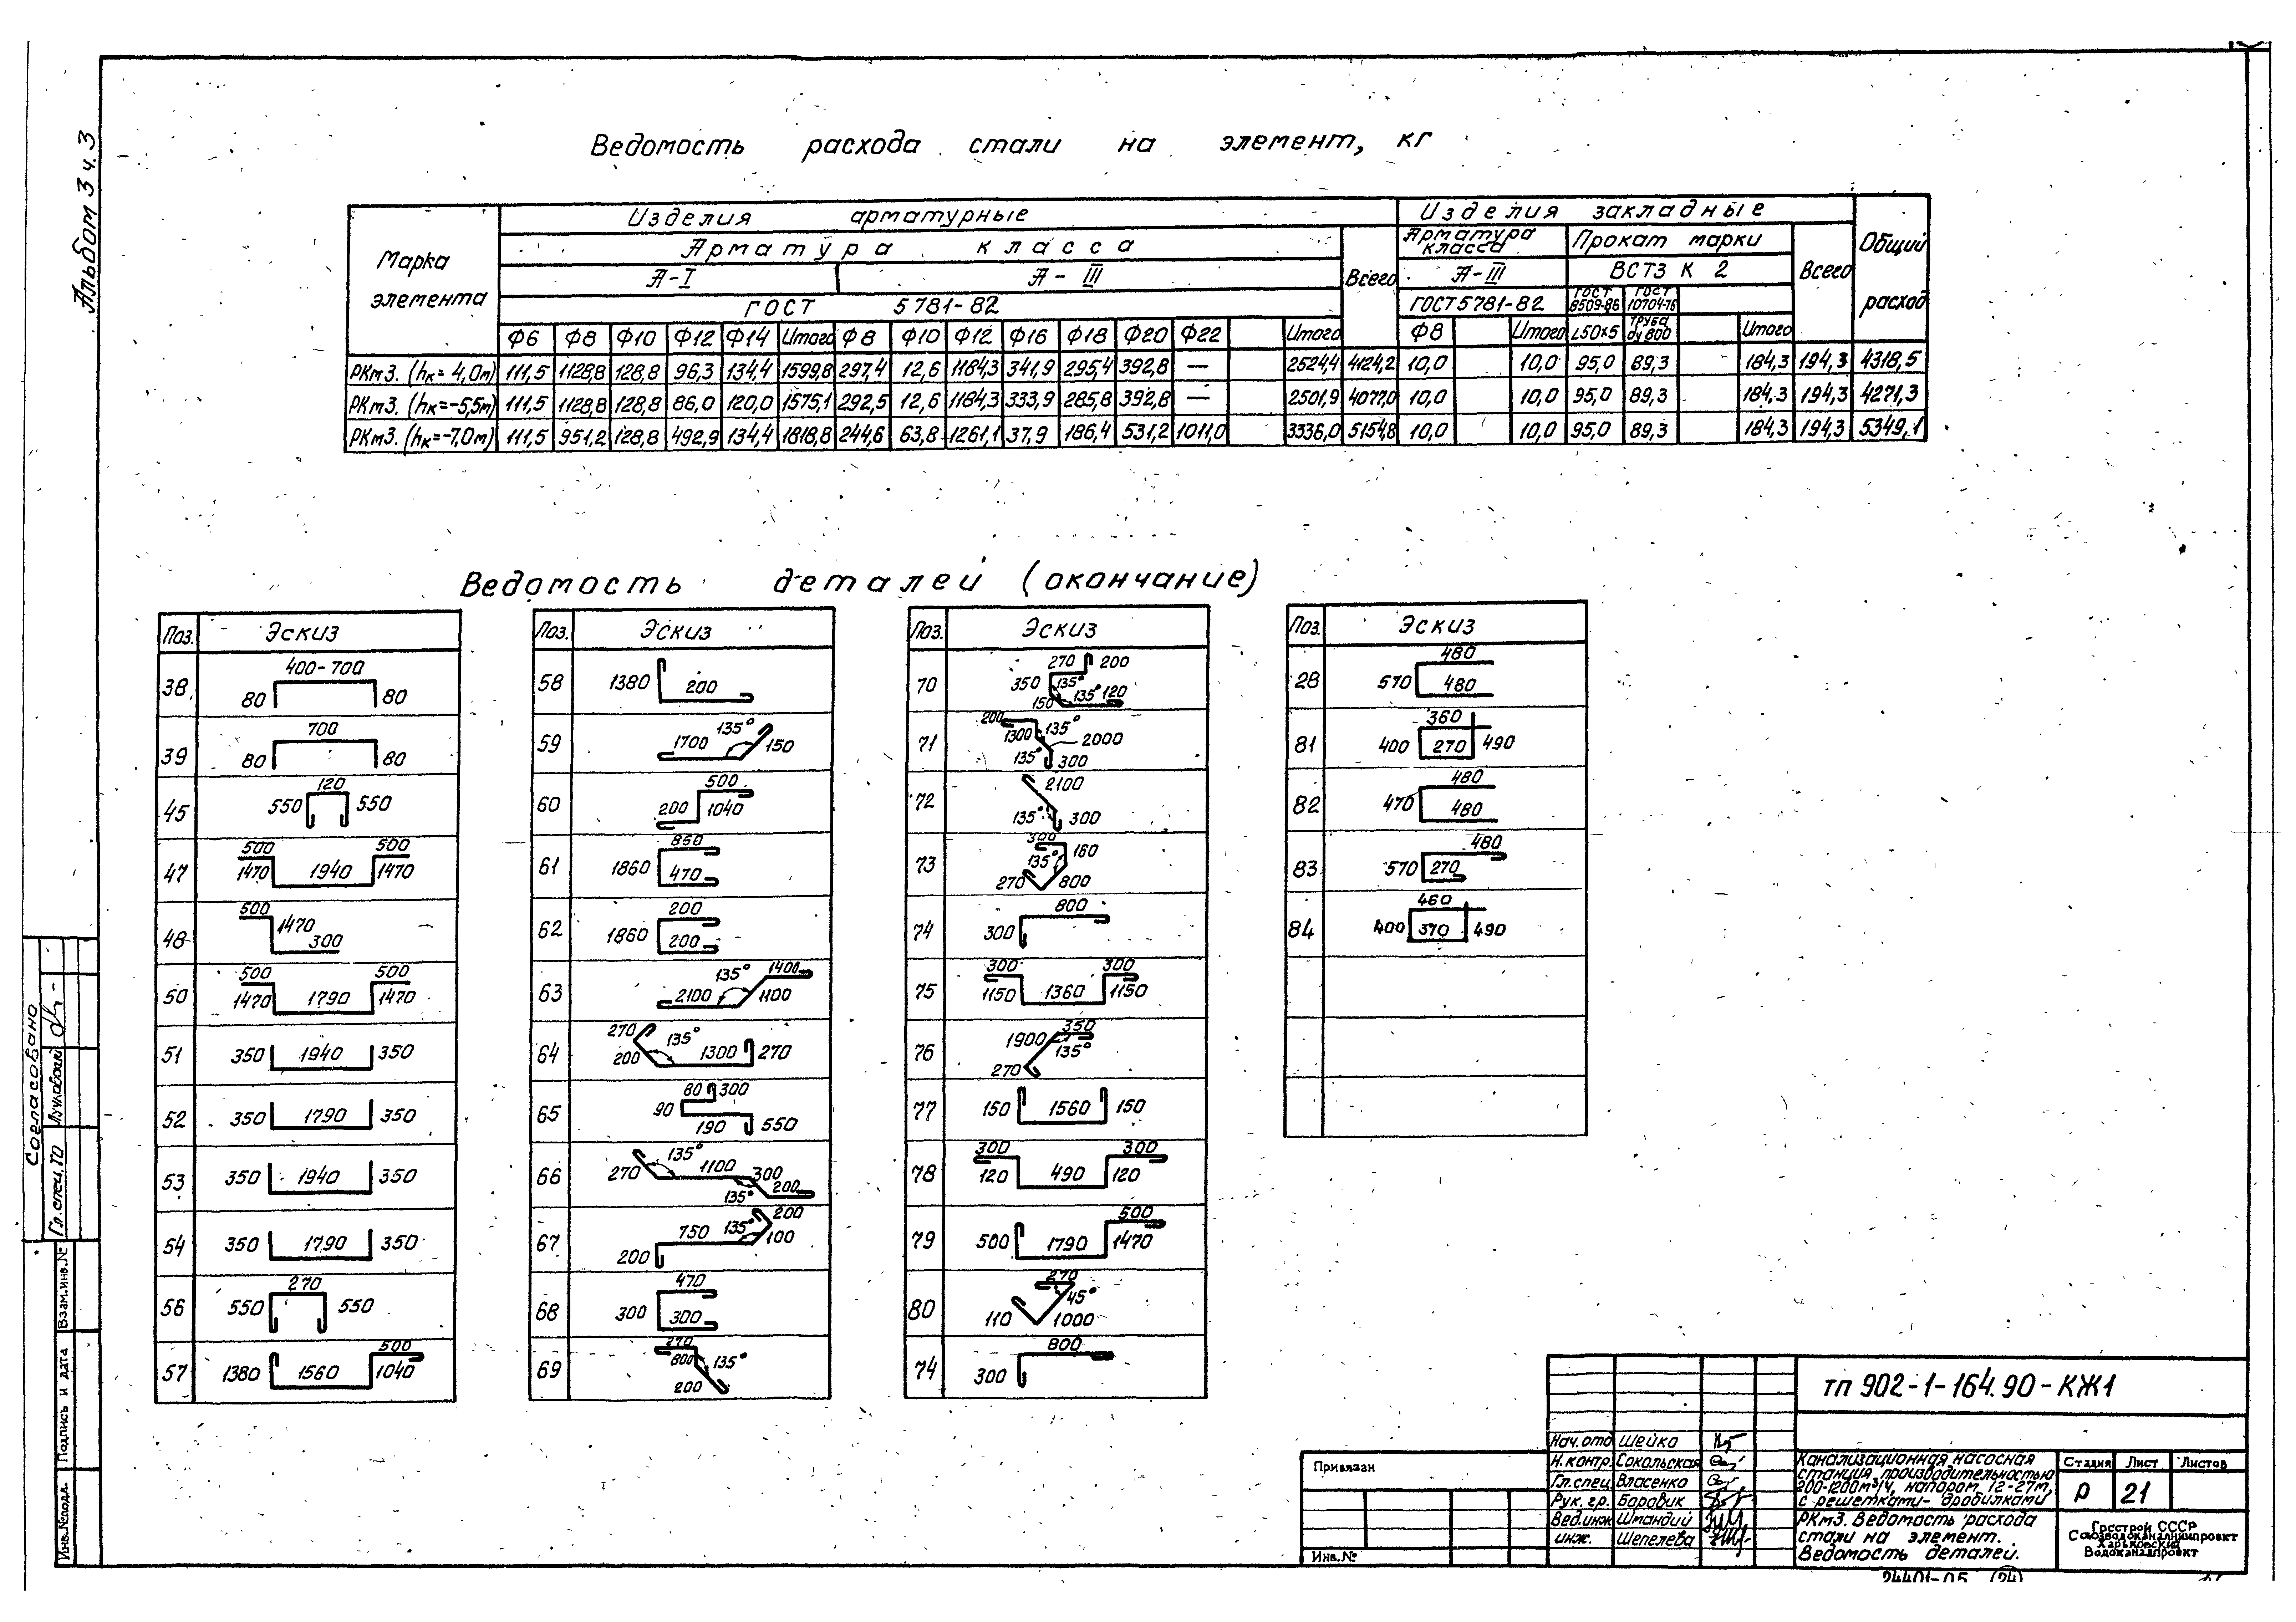 Альбом 3 ч. 3
Ведомость расхода стали на элемент, кг
Марка элемента
Изделия арматурные
Изделия закладные
Общий расход
Арматура класса
Всего
Арматура класса
Прокат марки
Всего
А-I
А-III
А-III
ВСТ3 К 2
ГОСТ 5781-82
ГОСТ 5781-82
ГОСТ 8509-86
ГОСТ 10704-76
Ф6 Ф8 Ф10 Ф12 Ф14 Итого Ф8 Ф10 Ф12 Ф16 Ф18 Ф20 Ф22 Итого Ф8 Итого L50х5 труба ду800 Итого
РКм3. (hк= 4,0м) 111,5 1128,8 128,8 96,3 134,4 1599,8 297,4 12,6 1184,3 341,9 295,4 392,8 — 2524,4 4124,2 10,0 10,0 95,0 89,3 184,3 194,3 4318,5
РКм3. (hк=-5,5м) 111,5 1128,8 128,8 86,0 120,0 1575,1 292,5 12,6 1184,3 333,9 285,8 392,8 — 2501,9 4077,0 10,0 10,0 95,0 89,3 184,3 194,3 4271,3
РКм3. (hк=-7,0м) 111,5 951,2 128,8 492,9 134,4 1818,8 244,6 63,8 1261,1 37,9 186,4 531,2 1011,0 3336,0 5154,8 10,0 10,0 95,0 89,3 184,3 194,3 5349,1
Ведомость деталей (окончание)
Поз. Эскиз
38 400-700 80 80
39 700 80 80
45 120 550 550
47 500 500 1470 1940 1470
48 500 1470 300
50 500 500 1470 1790 1470
51 350 1940 350
52 350 1790 350
53 350 1940 350
54 350 1790 350
56 270 550 550
57 500 1380 1560 1040
Поз. Эскиз
58 1380 200
59 135° 1700 150
60 500 200 1040
61 850 1860 470
62 200 1860 200
63 135° 1400 2100 1100
64 270 135° 200 1300 270
65 80 300 90 190 550
66 135° 270 1100 300 200 135°
67 200 750 135° 100 200
68 470 300 300
69 270 800 135° 200
Поз. Эскиз
70 270 200 350 135° 135° 120 150
71 200 1300 135° 2000 135° 300
72 2100 135° 300
73 300 160 135° 270 800
74 800 300
75 300 300 1150 1360 1150
76 350 1900 135° 270
77 150 1560 150
78 300 300 120 490 120
79 500 500 1790 1470
80 270 45° 110 1000
74 800 300
Поз. Эскиз
28 480 570 480
81 360 400 270 490
82 480 470 480
83 480 570 270
84 460 400 370 490
Согласовано
Гл. спец. ТО
Взам. инв. №
Подпись и дата
Инв. № подл.
Привязан
Инв. №
Нач. отд Шейко
Н. контр. Сокольская
Гл. спец. Власенко
Рук. гр. Боровик
Вед. инж Шмандий
инж. Шепелева
тп 902-1-164.90-КЖ1
Канализационная насосная
станция производительностью
200-1200м³/ч, напором 12-27м,
с решетками-дробилками
РКм3. Ведомость расхода
стали на элемент.
Ведомость деталей.
Стадия Лист Листов
Р 21
Госстрой СССР
Союзводоканалниипроект
Харьковский
Водоканалпроект
24401-05 (24)